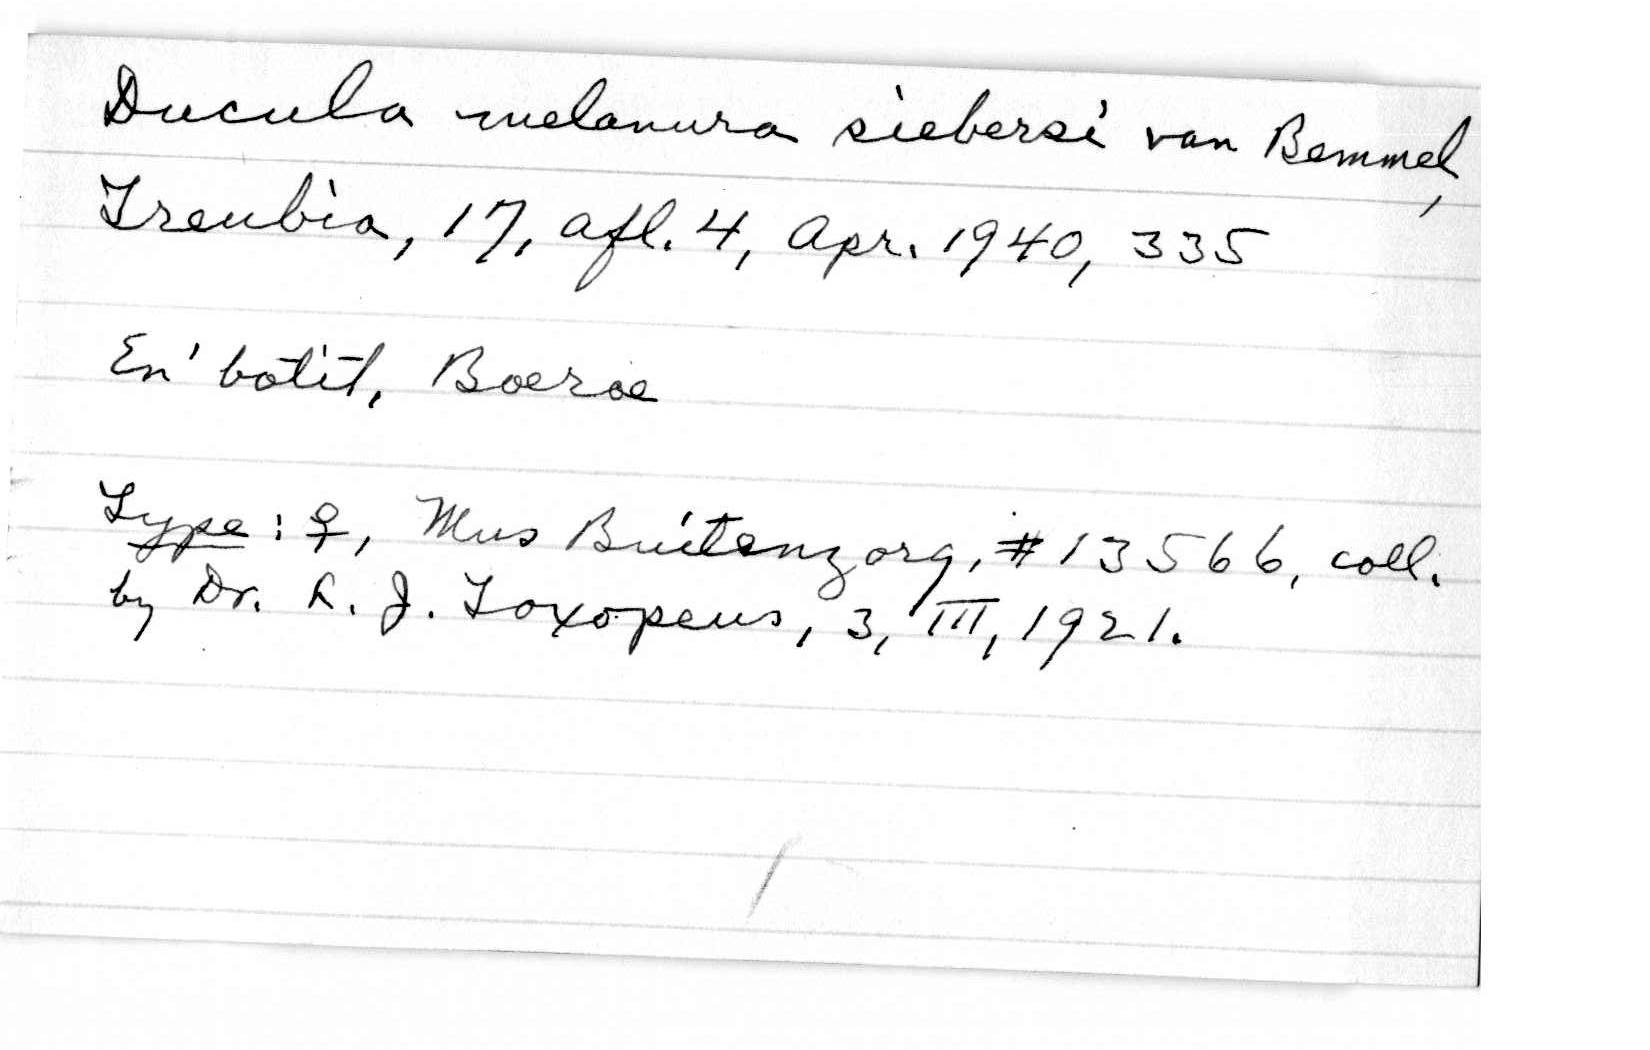 Ducula melanura siebersi van Bemmel,
Treubia, 17, afl. 4, Apr. 1940, 335
En' botit, Boeroe
Type: ♀, Mus Buitenzorg, #13566, coll.
by Dr. L. J. Toxopeus, 3, III, 1921.